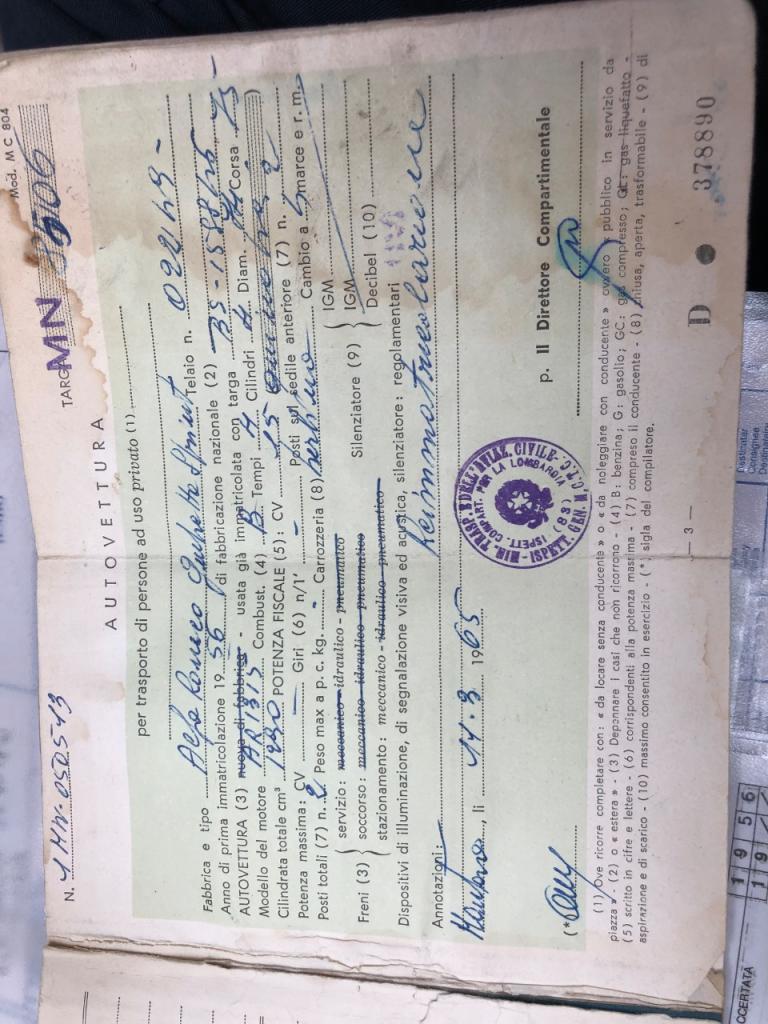 Mod. M C 804
N. 1MN.050543 TARGA MN
AUTOVETTURA
per trasporto di persone ad uso privato (1)
Fabbrica e tipo Alfa Romeo Giulietta Sprint Telaio n.
Anno di prima immatricolazione 1956 di fabbricazione nazionale (2)
AUTOVETTURA (3) nuova di fabbrica - usata già immatricolata con targa BS-
Modello del motore AR1315 Combust. (4) B Tempi 4 Cilindri 4 Diam. 74 Corsa 75
Cilindrata totale cm³ 1290 POTENZA FISCALE (5): CV 15 quindici )
Potenza massima: CV - Giri (6) n/1' - Posti sul sedile anteriore (7) n. 2
Posti totali (7) n. 2 Peso max a p. c. kg. - Carrozzeria (8) Cambio a marce e r. m.
Freni (3) { servizio: meccanico - idraulico - pneumatico
soccorso: meccanico - idraulico - pneumatico
stazionamento: meccanico - idraulico - pneumatico
Silenziatore (9) { IGM
IGM
Decibel (10)
Dispositivi di illuminazione, di segnalazione visiva ed acustica, silenziatore: regolamentari
Annotazioni: Reimmatricolazione
Mantova, li 11.3.1965
p. Il Direttore Compartimentale
MIN. TRASP. E DELL'AVIAZ. CIVILE - ISPETT. GEN. M.C.T.C.
ISPETT. COMPART. PER LA LOMBARDIA
(BS)
(*
(1) Ove ricorre completare con: « da locare senza conducente » o « da noleggiare con conducente » ovvero pubblico in servizio da
piazza » - (2) o « estera » - (3) Depennare i casi che non ricorrono - (4) B: benzina; G: gasolio; GC: gas compresso; GL: gas liquefatto -
(5) scritto in cifre e lettere - (6) corrispondenti alla potenza massima - (7) compreso il conducente - (8) chiusa, aperta, trasformabile - (9) di
aspirazione e di scarico - (10) massimo consentito in esercizio - (*) sigla del compilatore.
— 3 —
D ● 378890
CCERTATA
1956
19
Destinatar
Consignee
Destinataire